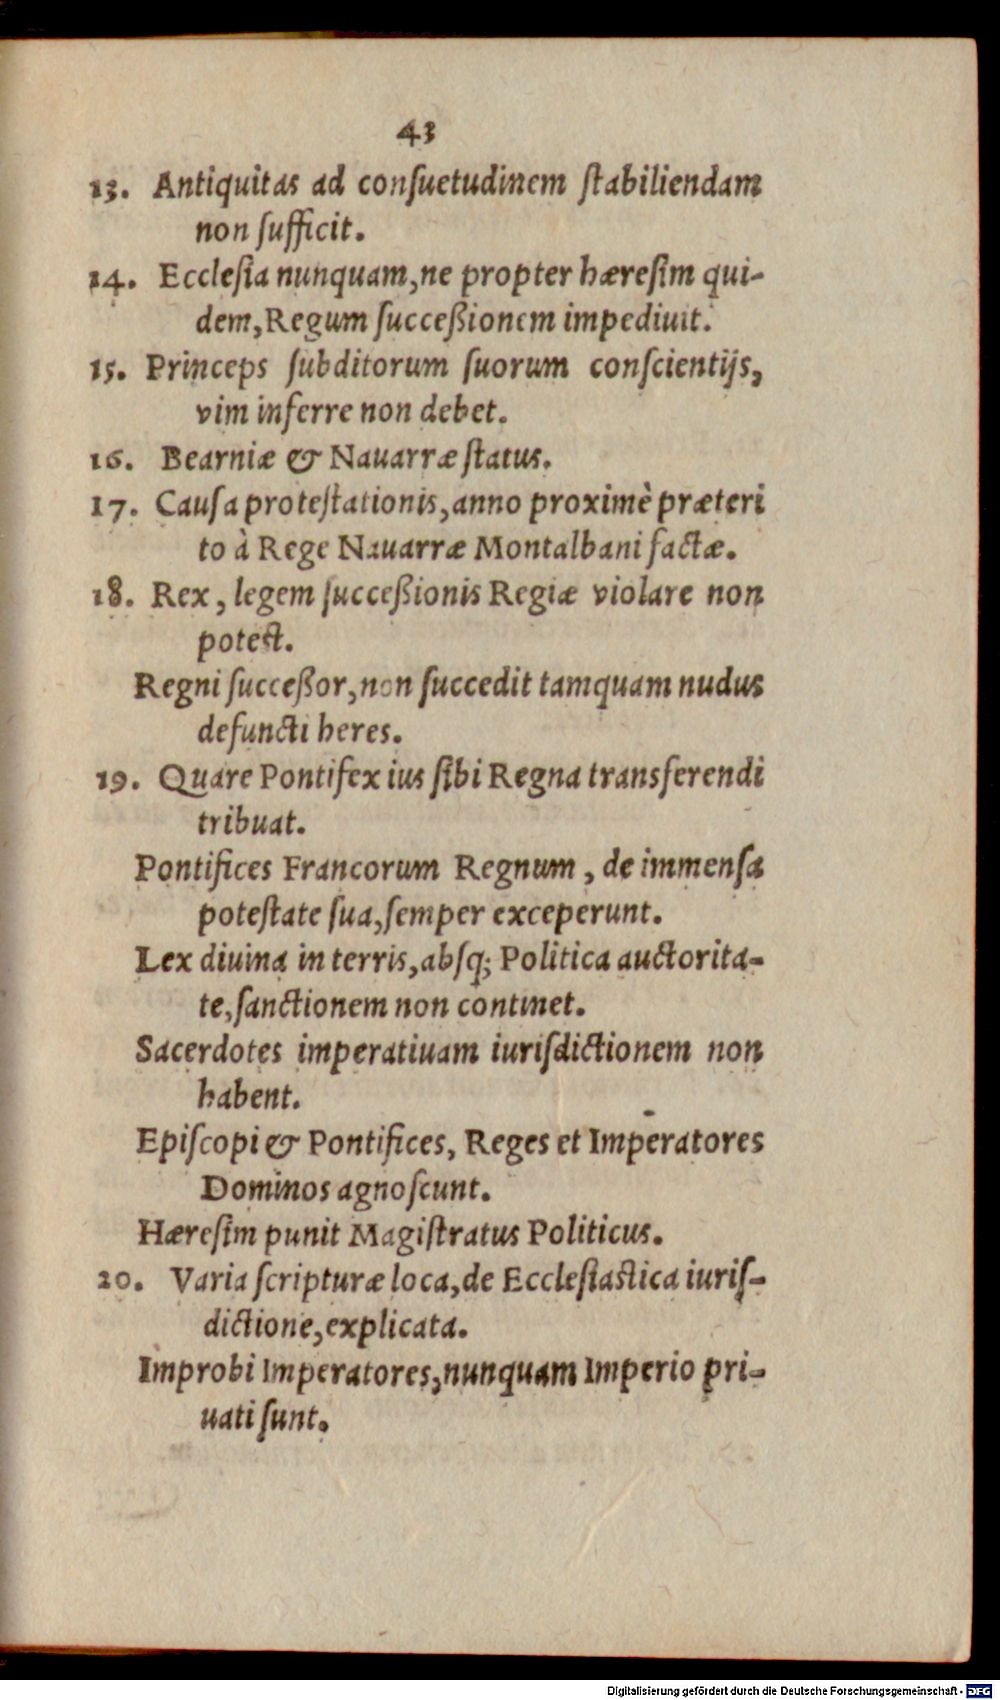 43
13. Antiquitas ad conſuetudinem ſtabiliendam
non ſufficit.
14. Eccleſia nunquam, ne propter hæreſim qui-
dem, Regum ſucceßionem impediuit.
15. Princeps ſubditorum ſuorum conſcientijs,
vim inferre non debet.
16. Bearniæ & Nauarræ ſtatus.
17. Cauſa proteſtationis, anno proximè præteri
to à Rege Nauarræ Montalbani factæ.
18. Rex, legem ſucceßionis Regiæ violare non
poteſt.
Regni ſucceßor, non ſuccedit tamquam nudus
defuncti heres.
19. Quare Pontifex ius ſibi Regna transferendi
tribuat.
Pontifices Francorum Regnum, de immenſa
poteſtate ſua, ſemper exceperunt.
Lex diuina in terris, abſq; Politica auctorita-
te, ſanctionem non continet.
Sacerdotes imperatiuam iuriſdictionem non
habent.
Epiſcopi & Pontifices, Reges et Imperatores
Dominos agnoſcunt.
Hæreſim punit Magiſtratus Politicus.
20. Varia ſcripturæ loca, de Eccleſiaſtica iuriſ-
dictione, explicata.
Improbi Imperatores, nunquam Imperio pri-
uati ſunt.
Digitalisierung gefördert durch die Deutsche Forschungsgemeinschaft - DFG